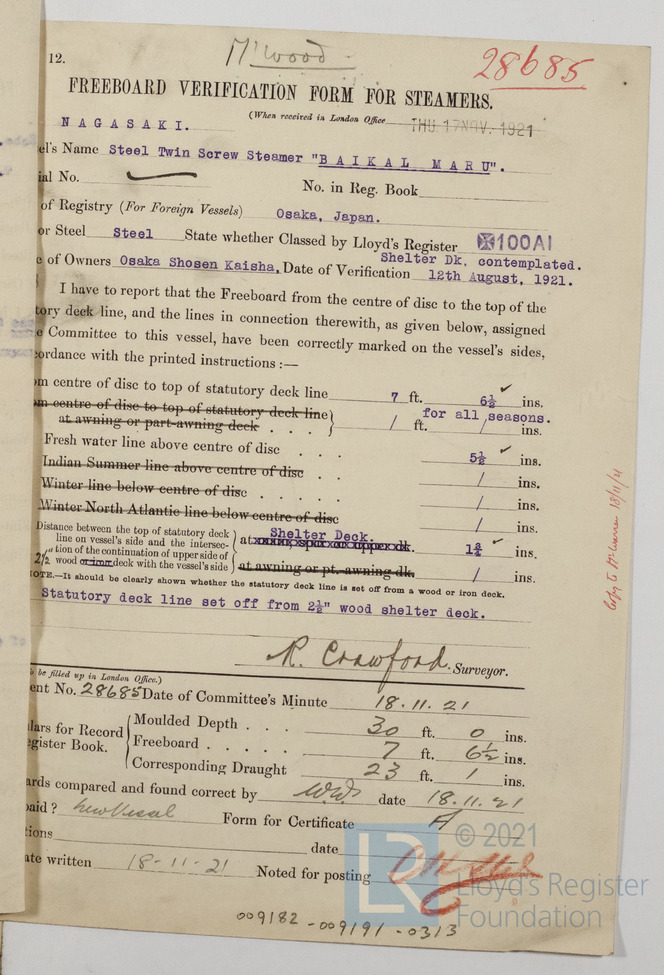 12.
McWood
28685
FREEBOARD VERIFICATION FORM FOR STEAMERS.
(When received in London Office THU 17 NOV. 1921
NAGASAKI.
el's Name Steel Twin Screw Steamer "BAIKAL MARU".
ial No.
No. in Reg. Book
of Registry (For Foreign Vessels) Osaka, Japan.
or Steel Steel State whether Classed by Lloyd's Register ✠100A1
Shelter Dk. contemplated.
e of Owners Osaka Shosen Kaisha. Date of Verification 12th August, 1921.
I have to report that the Freeboard from the centre of disc to the top of the
tory deck line, and the lines in connection therewith, as given below, assigned
e Committee to this vessel, have been correctly marked on the vessel's sides,
cordance with the printed instructions :—
om centre of disc to top of statutory deck line 7 ft. 6½ ins.
for all seasons.
om centre of disc to top of statutory deck line
at awning or part-awning deck . . . } / ft. / ins.
Fresh water line above centre of disc . . . 5½ ins.
Indian Summer line above centre of disc . . / ins.
Winter line below centre of disc . . . . . / ins.
Winter North Atlantic line below centre of disc / ins.
Distance between the top of statutory deck
line on vessel's side and the intersec-
tion of the continuation of upper side of
2½" wood or iron deck with the vessel's side
Shelter Deck.
at main, spar or upper dk. 1¾ ins.
at awning or pt.-awning dk. / ins.
NOTE.—It should be clearly shown whether the statutory deck line is set off from a wood or iron deck.
Statutory deck line set off from 2½" wood shelter deck.
R. Crawford. Surveyor.
o be filled up in London Office.)
ent No. 28685 Date of Committee's Minute 18.11.21
lars for Record
egister Book.
Moulded Depth . . . 30 ft. 0 ins.
Freeboard . . . . . 7 ft. 6½ ins.
Corresponding Draught 23 ft. 1 ins.
ards compared and found correct by W.W. date 18.11.21
paid? New Vessel Form for Certificate A
tions date
ate written 18-11-21 Noted for posting
009182-009191-0313
Copy to 18/11/21
LR
© 2021
Lloyd's Register
Foundation